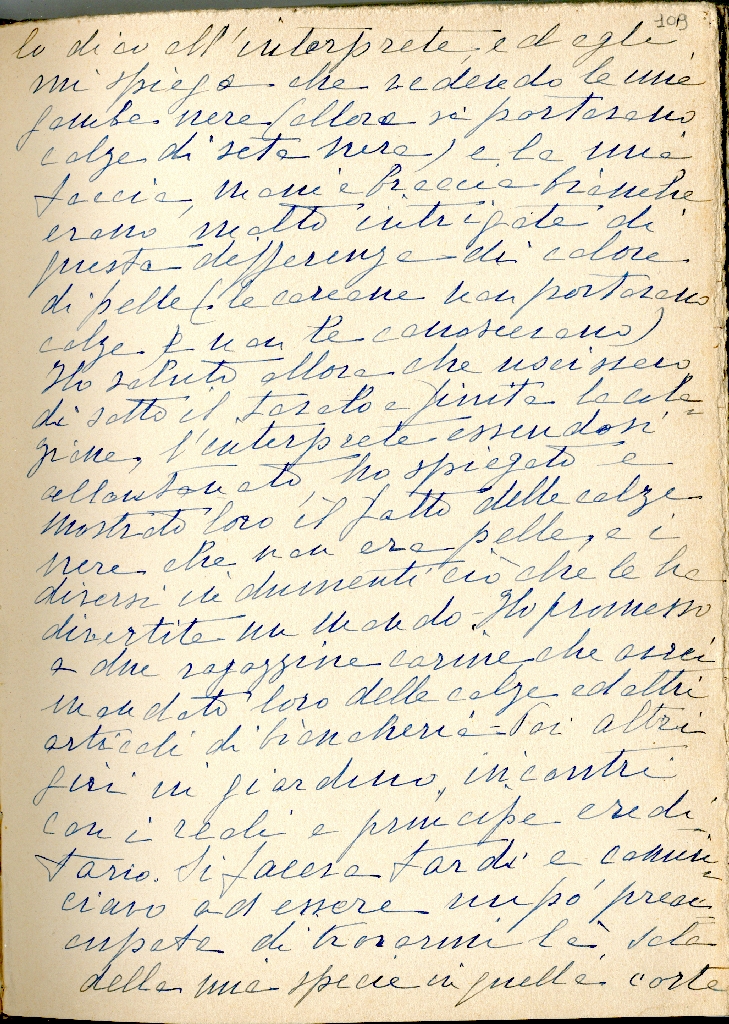 108
lo dico all'interprete, ed egli
mi spiega che vedendo le mie
gambe nere (allora si portavano
calze di seta nera) e la mia
faccia, mani e braccia bianche
erano molto intrigate di
questa differenza di colore
di pelle (le coreane non portavano
calze e non le conoscevano)
Ho voluto allora che uscissero
di sotto il tavolo e finita la cola-
zione, l'interprete essendosi
allontanato, ho spiegato e
mostrato loro il fatto delle calze
nere che non era pelle, e i
diversi indumenti ciò che le ha
divertite un mondo. Ho promesso
a due ragazzine carine che avrei
mandato loro delle calze ed altri
articoli di biancheria - Poi altri
giri in giardino, incontri
con i reali e principe eredi-
tario. Si faceva tardi e comin-
ciavo ad essere un pó preoc
cupata di trovarmi là, sola
della mia specie in quella corte